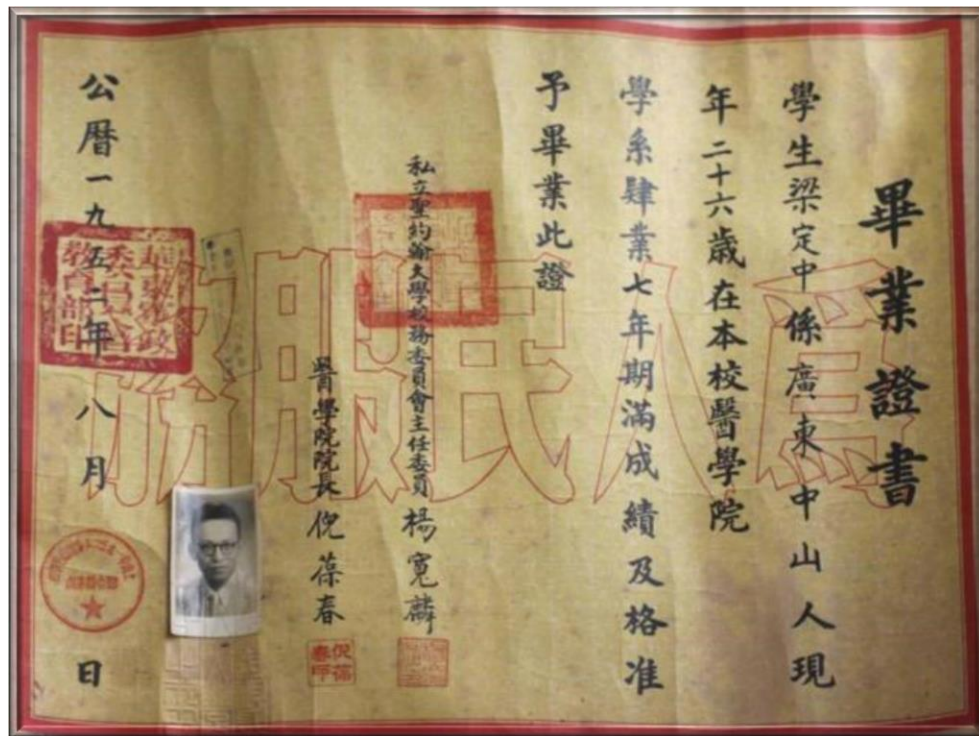 畢業證書
學生梁定中係廣東中山人現
年二十六歲在本校醫學院
學系肄業七年期滿成績及格准
予畢業此證
私立聖約翰大學校務委員會主任委員楊寬麟
醫學院院長倪葆春
倪葆春印
公曆一九五二年八月 日
教育部印
爲人民服務